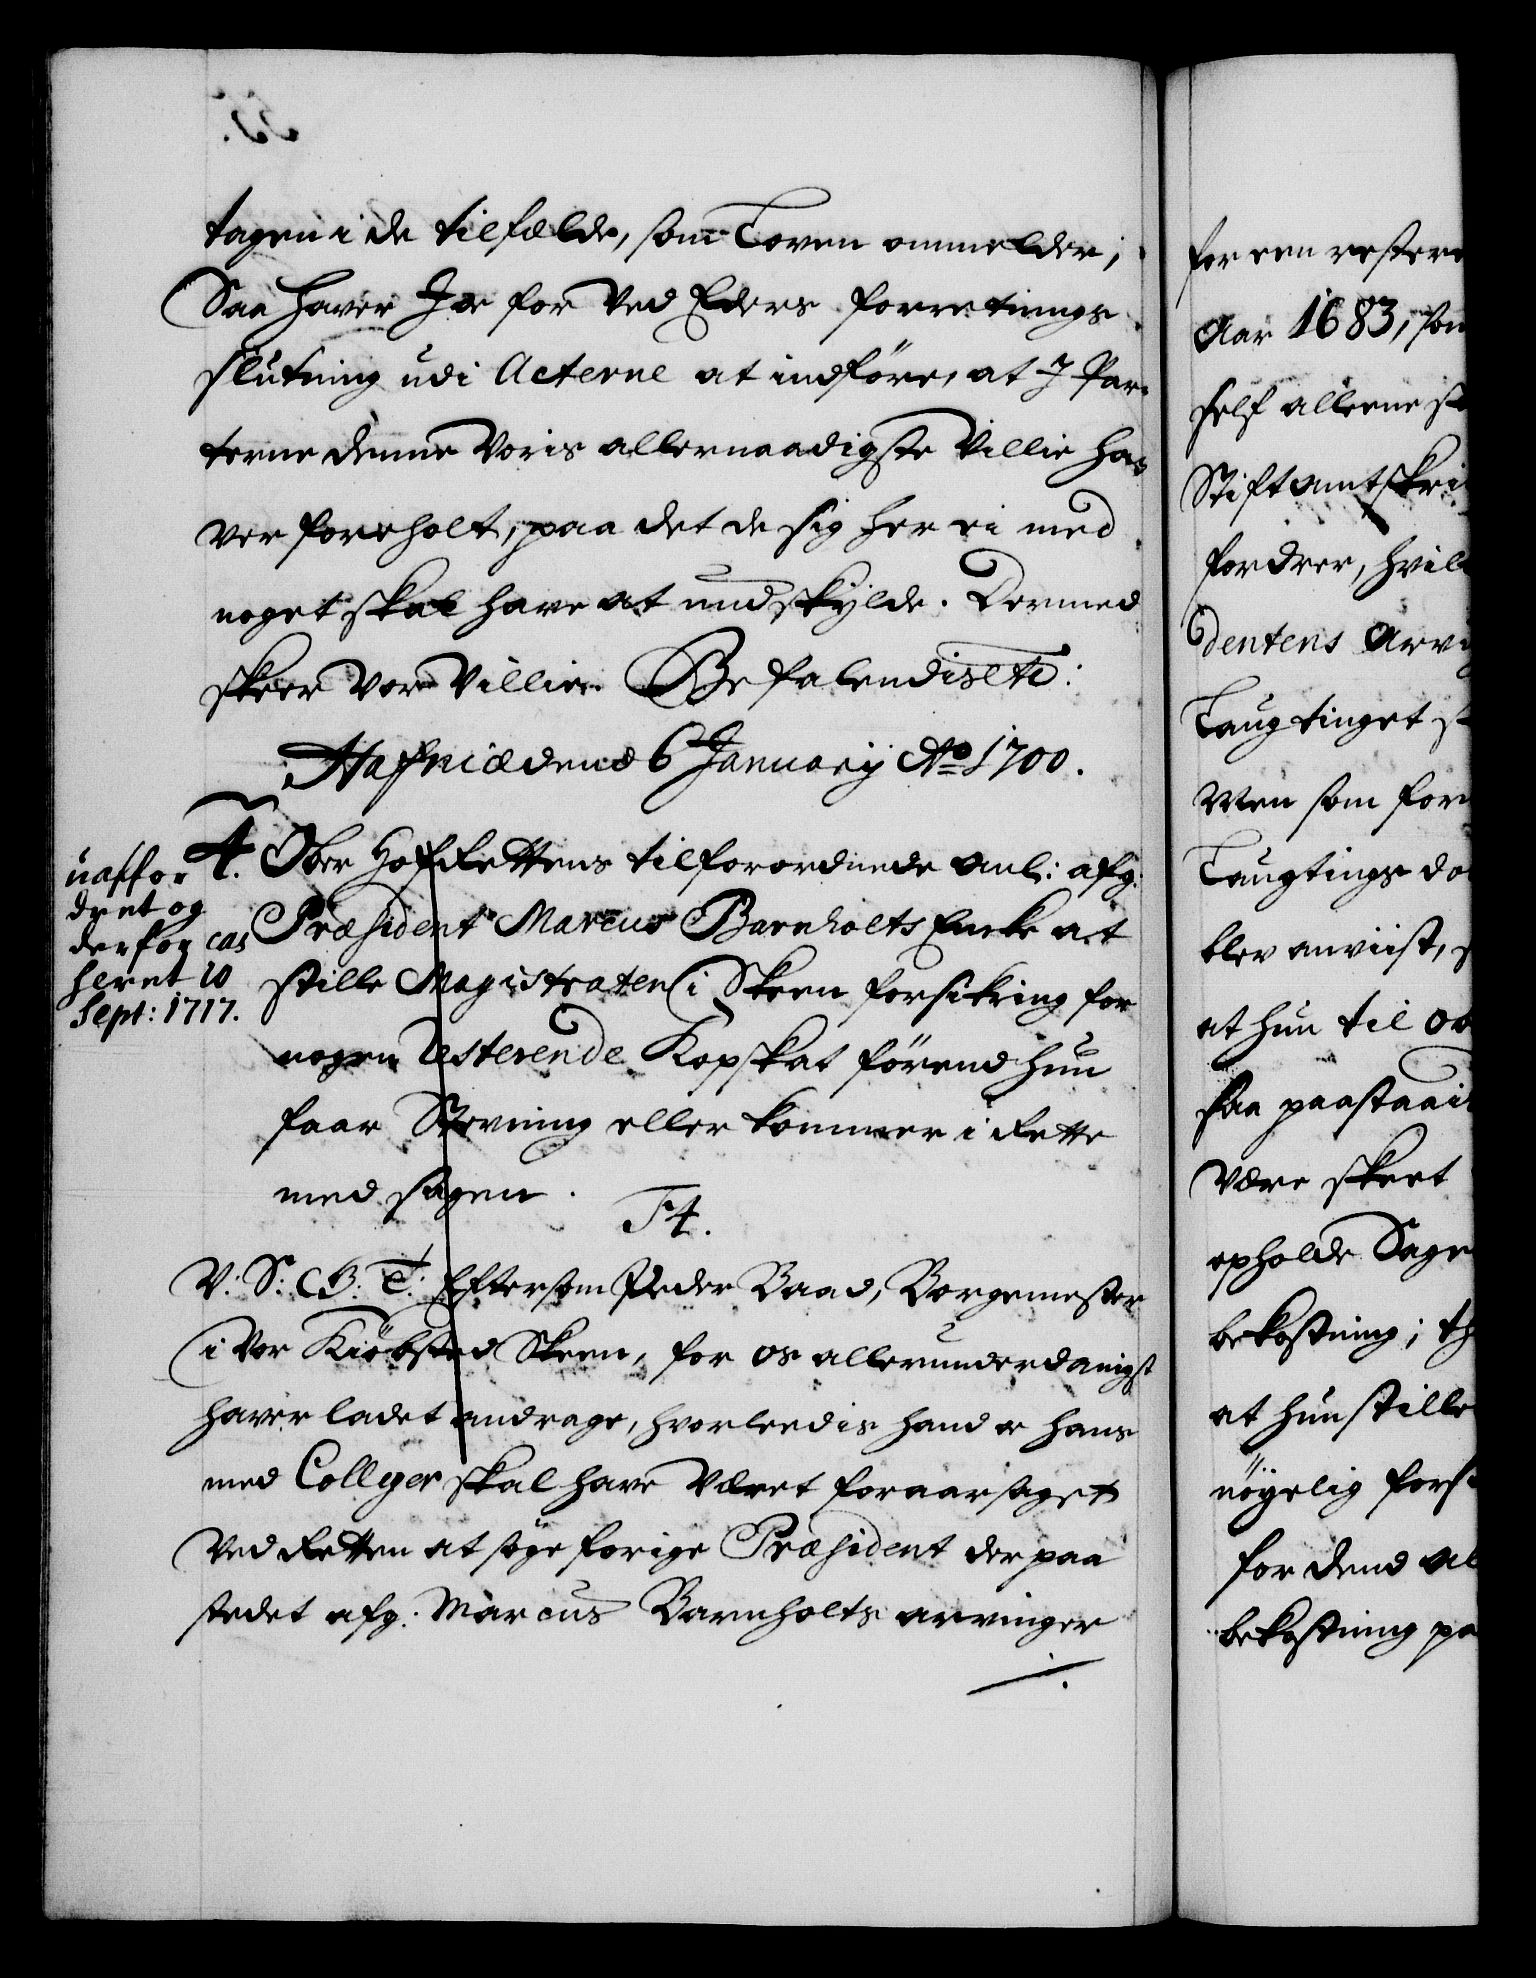 tagen i de tilfælde, som Loven ommelder;
Saa haver I her for ved Eders forretnings
slutning udi Acterne at indføre, at I Par-
terne denne Voris allernaadigste Villie ha-
ver foreholt, paa det de sig her ei med
noget skal have at undskylde. Dermed
skeer Vor Villie. Befalendis etc:
Hafniæ dend 6 January Ao 1700.
4. Ober Hofrettens tilforordnede anl: afg:
Præsident Marcus Barnholts Encke at
stille Magistraten i Skeen forsikring for
nogen resterende Kopskat førend hun
faar Stevning eller kommer i Rette
med sagen.
uaffor
dret og
derfor cas
heret 10
Sept: 1717.
T4.
V: S: G: T: Eftersom Peder Baad, Borgemester
i vor Kiøbsted Skeen, for os allerunderdanigst
haver ladet andrage, hvorleedis hand &amp; hans
med Colleger skal have været foraarsaget
ved Retten at søge forige Præsident der paa
stedet afg. Marcus Barnholts arvinger
for een restere
Aar 1683, som
self allerne
Stiftamtskri
fordrer, hvil
dentens Arvi
Laugtinget
Men som for
Laugtings do
blev anviist,
at hun til
saa paastaai
være skeet
opholde Sage
bekostning; th
at hun stille
nøyelig fors
for dend al
bekostning pa